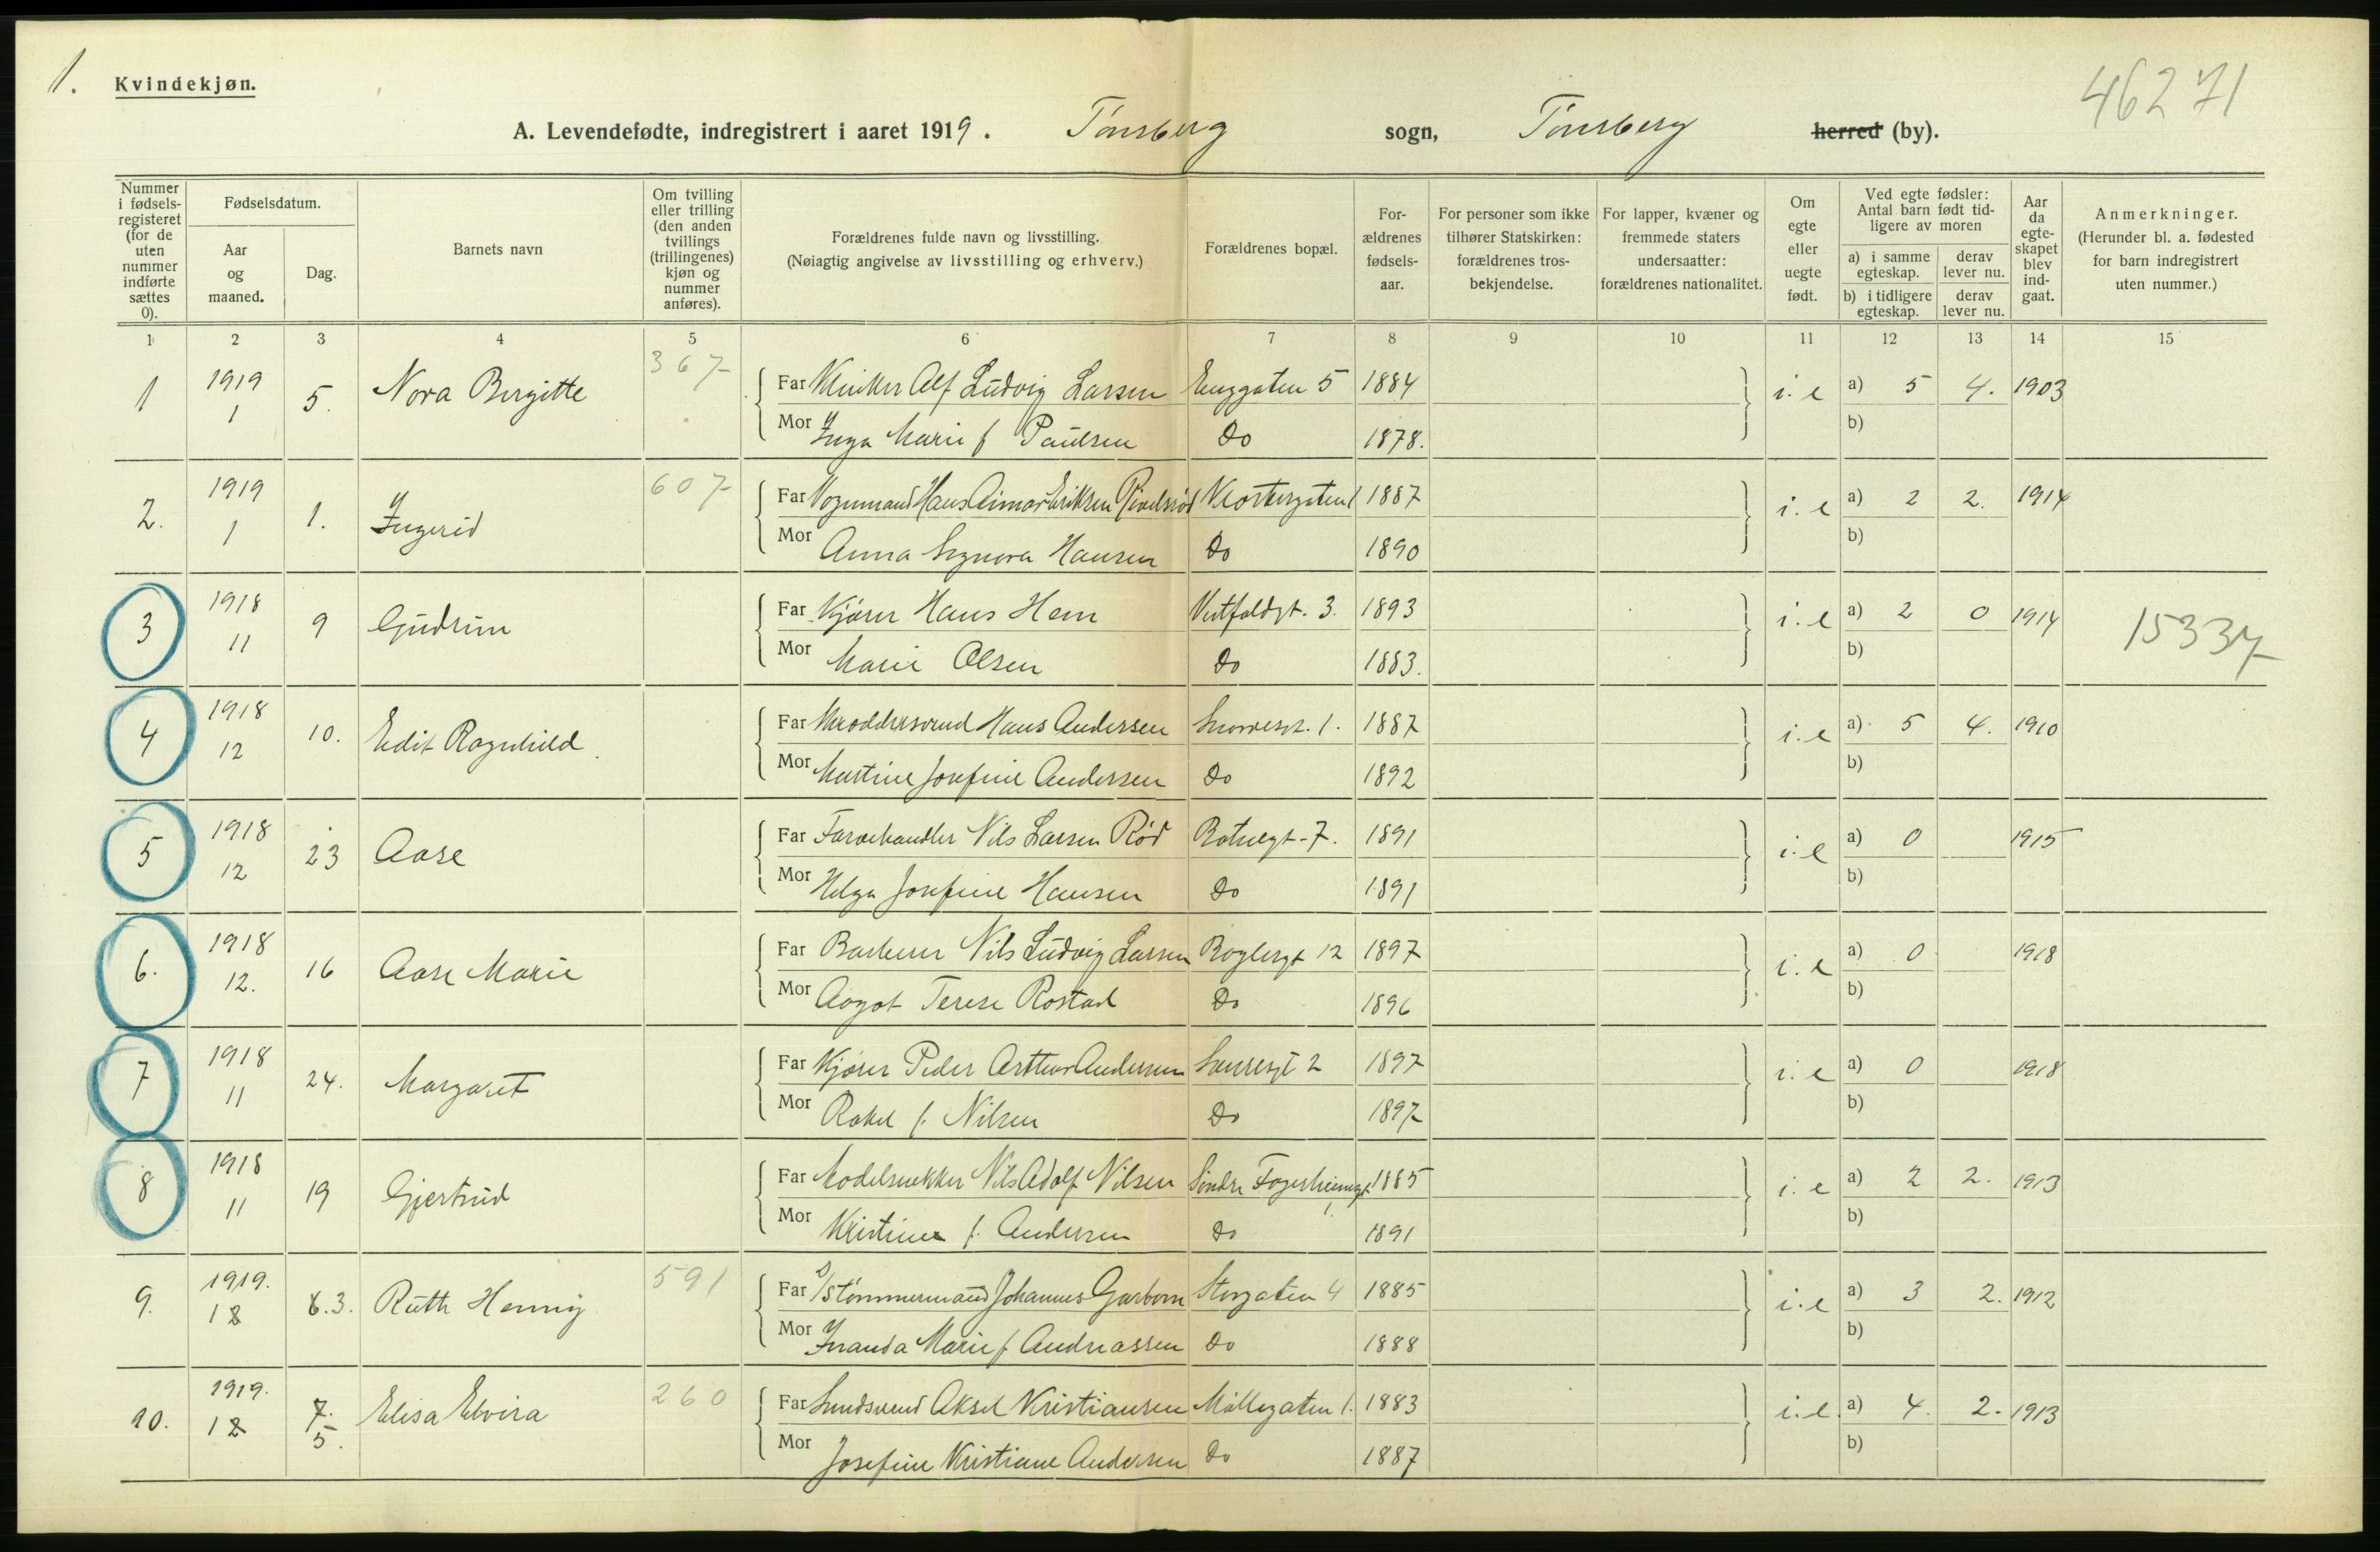 1.
Kvindekjøn.
46271
A. Levendefødte, indregistrert i aaret 1919. Tønsberg sogn, Tønsberg herred (by).
Nummer i fødsels-registeret (for de uten nummer indførte sættes 0).
Fødselsdatum.
Aar og maaned.
Dag.
Barnets navn
Om tvilling eller trilling (den anden tvillings (trillingenes) kjøn og nummer anføres).
Forældrenes fulde navn og livsstilling.
(Nøiagtig angivelse av livsstilling og erhverv.)
Forældrenes bopæl.
For-ældrenes fødsels-aar.
For personer som ikke tilhører Statskirken: forældrenes tros-bekjendelse.
For lapper, kvæner og fremmede staters undersaatter: forældrenes nationalitet.
Om egte eller uegte født.
Ved egte fødsler: Antal barn født tid-ligere av moren
a) i samme egteskap.
derav lever nu.
b) i tidligere egteskap.
derav lever nu.
Aar da egte-skapet blev ind-gaat.
Anmerkninger.
(Herunder bl. a. fødested for barn indregistrert uten nummer.)
1 2 3 4 5 6 7 8 9 10 11 12 13 14 15
1 1919 1 5. Nora Birgitte 367 Far Klinker Alf Ludvig Larsen Enggaten 5 1884 i. e a) 5 4. 1903
Mor Inga Marie f Paulsen Do 1878. b)
2. 1919 1 1. Ingerid 607 Far Vognmand Hans Eriksen 1887 i. e a) 2 2. 1914
Mor Anna Signora Hansen Do 1890 b)
3 1918 11 9 Gudrun Far Kjører Hans Hem Vestfoldgt. 3. 1893 i. e a) 2 0 1914 15337
Mor Marie Olsen Do 1883. b)
4 1918 12 10. Edit Ragnhild Far Hans Andersen Snorresgt. 1. 1887 i. e a) 5 4. 1910
Mor Martine Josefine Andersen Do 1892 b)
5 1918 12 23 Aase Far Farvehandler Nils Larsen Rød 7. 1891 i. e a) 0 1915
Mor Helga Josefine Hansen Do 1891 b)
6. 1918 12. 16 Aase Marie Far Barberer Nils Ludvig Larsen Baglergt 12 1897 i. e a) 0 1918
Mor Aagot Terese Rostad Do 1896 b)
7 1918 11 24. Margaret Far Kjører Peder Arthur Andersen 2 1897 i. e a) 0 1918
Mor Rakel f. Nilsen Do 1897 b)
8 1918 11 19 Gjertrud Far Modelsnekker Nils Adolf Nilsen Søndre Fagerheimgt 1885 i. e a) 2 2. 1913
Mor Kristine f. Andersen Do 1891 b)
9. 1919. 1 2 8. 3. Ruth Henny 591 Far D/s tømmermand Johannes Garborn Storgaten 4 1885 i. e a) 3 2. 1912
Mor Inanda Marie f Andreassen Do 1888 b)
10. 1919. 1 2 7. 5. Elisa Elvira 260 Far Smedsvend Aksel Kristiansen Møllegaten 1. 1883 i. e. a) 4. 2. 1913
Mor Josefine Kristiane Andersen Do 1887 b)